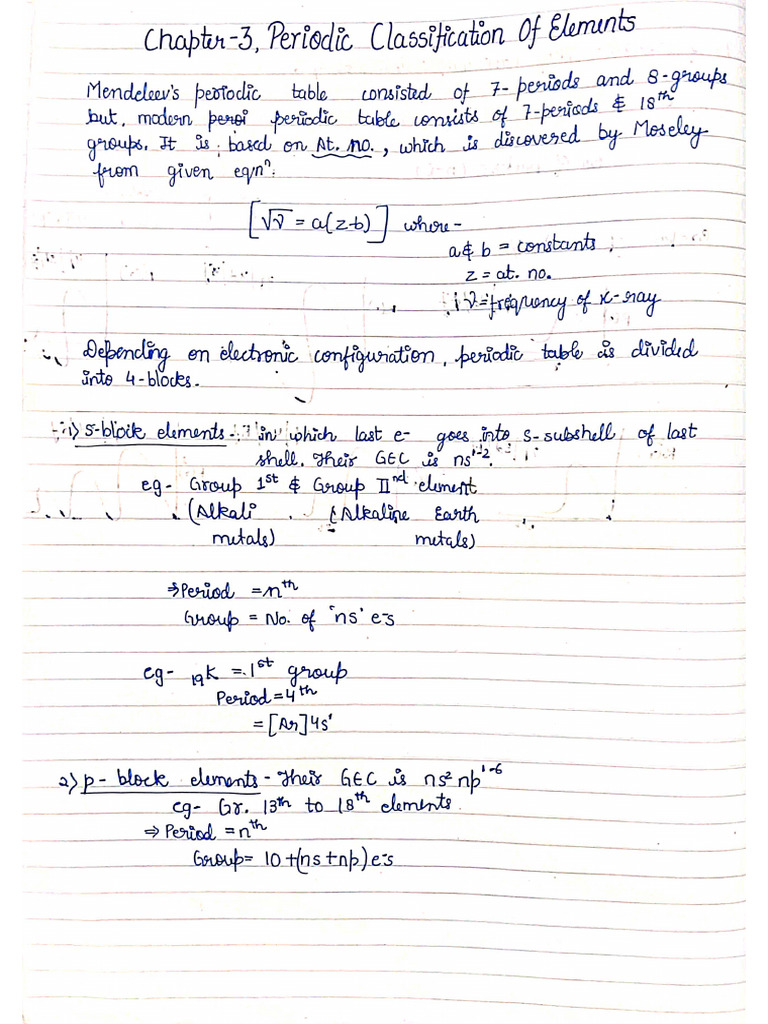 Chapter-3, Periodic Classification Of Elements
Mendeleev's periodic table consisted of 7-periods and 8-groups
but, modern peroi periodic table consists of 7-periods & 18th
groups. It is based on At. no., which is discovered by Moseley
from given eqnⁿ.
[√ν = a(z-b)] where-
a & b = constants
z = at. no.
ν = frequency of x-ray
Depending on electronic configuration, periodic table is divided
into 4-blocks.
1) s-block elements - in which last e- goes into s-subshell of last
shell. Their GEC is ns¹⁻².
eg- Group 1st & Group IInd element
(Alkali (Alkaline Earth
metals) metals)
⇒ Period = nth
Group = No. of 'ns' e-s
eg- ₁₉K = 1st group
Period = 4th
= [Ar] 4s¹
2) p- block elements - Their GEC is ns² np¹⁻⁶
eg- Gr. 13th to 18th elements
⇒ Period = nth
Group = 10 + (ns + np) e-s